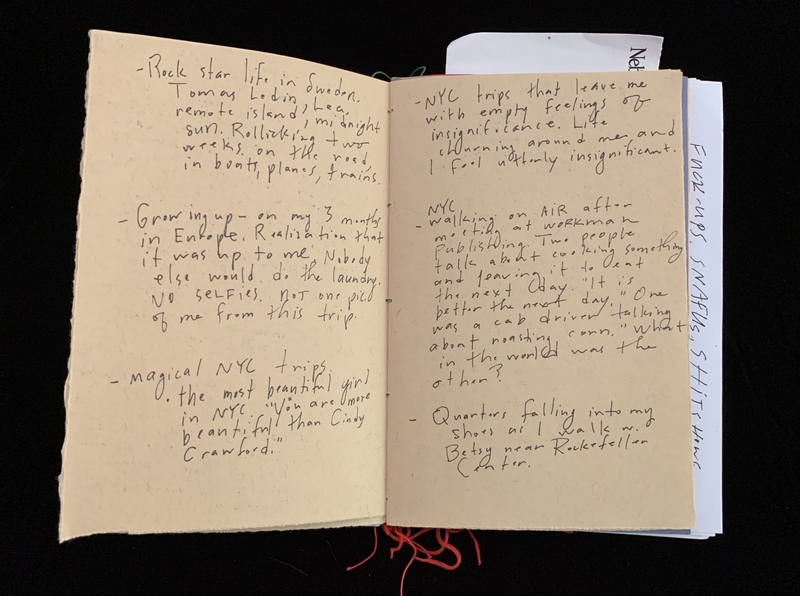 - Rock star life in Sweden.
Tomas Ledin, Lea,
remote island, midnight
sun. Rollicking two
weeks on the road,
in boats, planes, trains.
- Growing up - on my 3 months
in Europe. Realization that
it was up to me. Nobody
else would do the laundry.
NO SELFIES. NOT one pic
of me from this trip.
- Magical NYC trips.
. the most beautiful girl
in NYC. "You are more
beautiful than Cindy
Crawford."
- NYC trips that leave me
with empty feelings of
insignificance. Life
churning around me and
I feel utterly insignificant.
NYC
- Walking on AIR after
meeting at WORKMAN
Publishing. Two people
talk about cooking something
and leaving it to eat
the next day. "It is
better the next day." One
was a cab driver talking
about roasting corn." What
in the world was the
other?
- Quarters falling into my
shoes as I walk w.
Betsy near Rockefeller
Center.
Net
FUCK-UPS, SNAFUS, SHITSHOWS